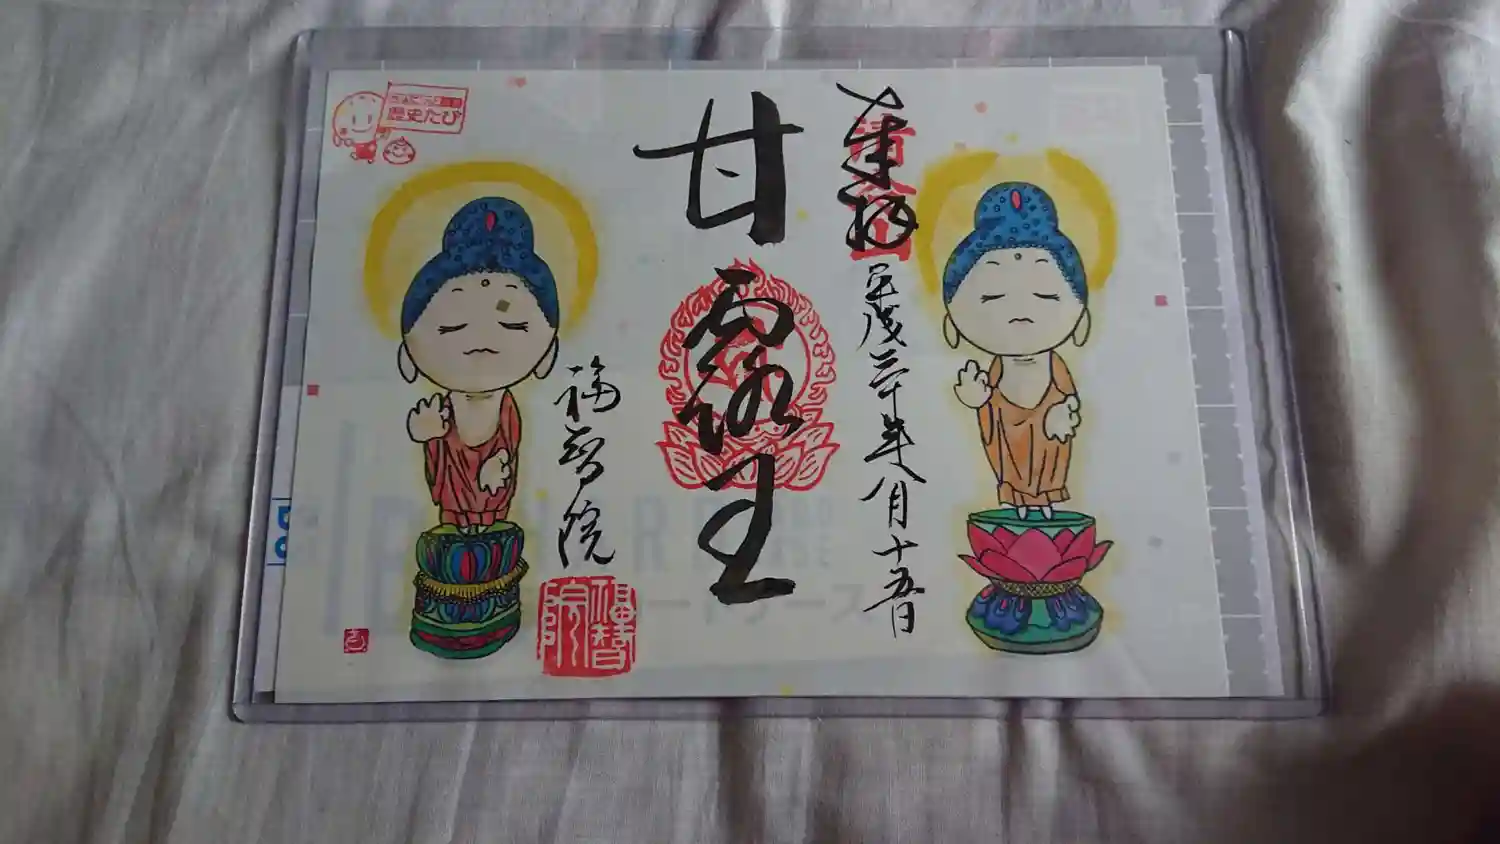 奉拝
平成三十年八月十五日
甘露王
福智院
福智院
歴史たび